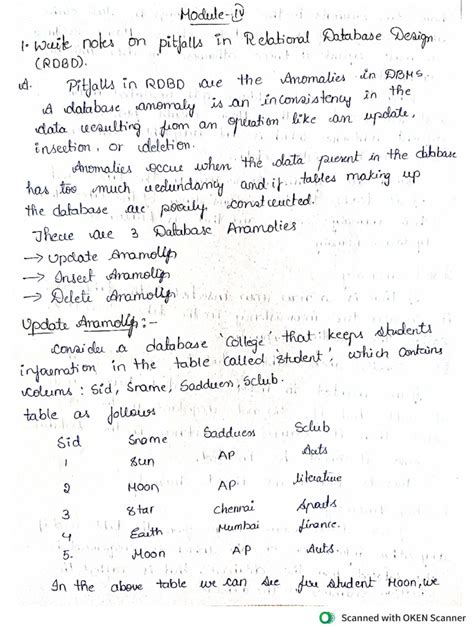 Module-IV
1. Write notes on pitfalls in Relational Database Design
(RDBD).
A. Pitfalls in RDBD are the Anomalies in DBMS.
A database anomaly is an inconsistency in the
data resulting from an operation like an update,
insection, or deletion.
Anomalies occur when the data present in the database
has too much redundancy and if tables making up
the database are poorly constructed.
There are 3 Database Anamolies
→ Update Anamoly
→ Insect Anamoly
→ Delete Anamoly
Update Anamoly:-
Consider a database 'College' that keeps students
information in the table called 'student', which contains
colums : Sid, Sname, Saddress, Sclub.
table as follows
Sid Sname Saddress Sclub
1 Sun AP Auts
2 Moon AP literative
3 Star Chennai Sports
4 Earth Mumbai finance.
5. Moon AP Auts.
In the above table we can see for student Moon, we
Scanned with OKEN Scanner